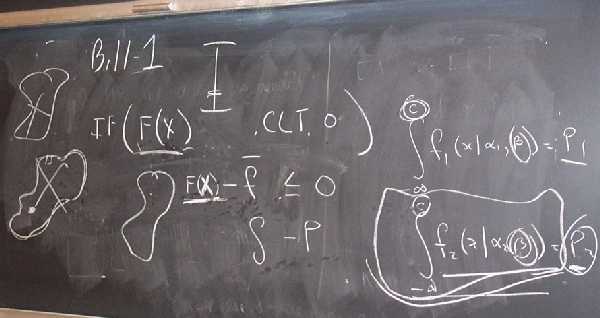 Bill-1
IF(F(X) .CLT. 0)
F(X) - f̅ ≤ 0
∫ - P
C
∫ f₁(x|α₁,β) = P₁
-∞
C
∫ f₂(x|α₂,β) = P₂
-∞